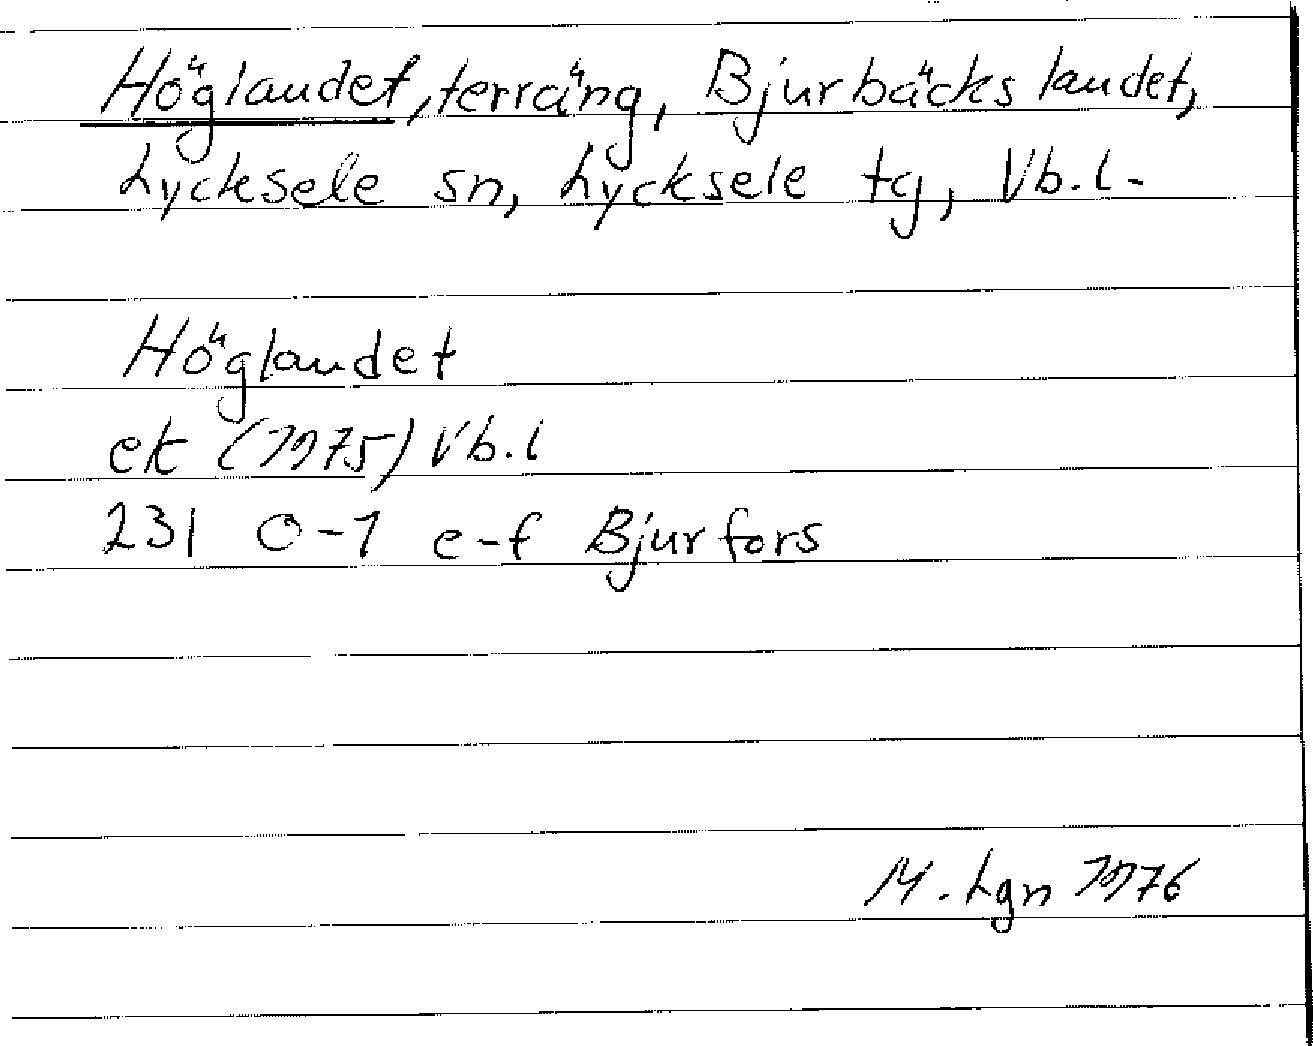 Höglandet, terräng, Bjurbäckslandet,
Lycksele sn, Lycksele tg, Vb.l.
Höglandet
ek (1975) Vb.l
231 0-1 e-f Bjurfors
M. Lgn 1976